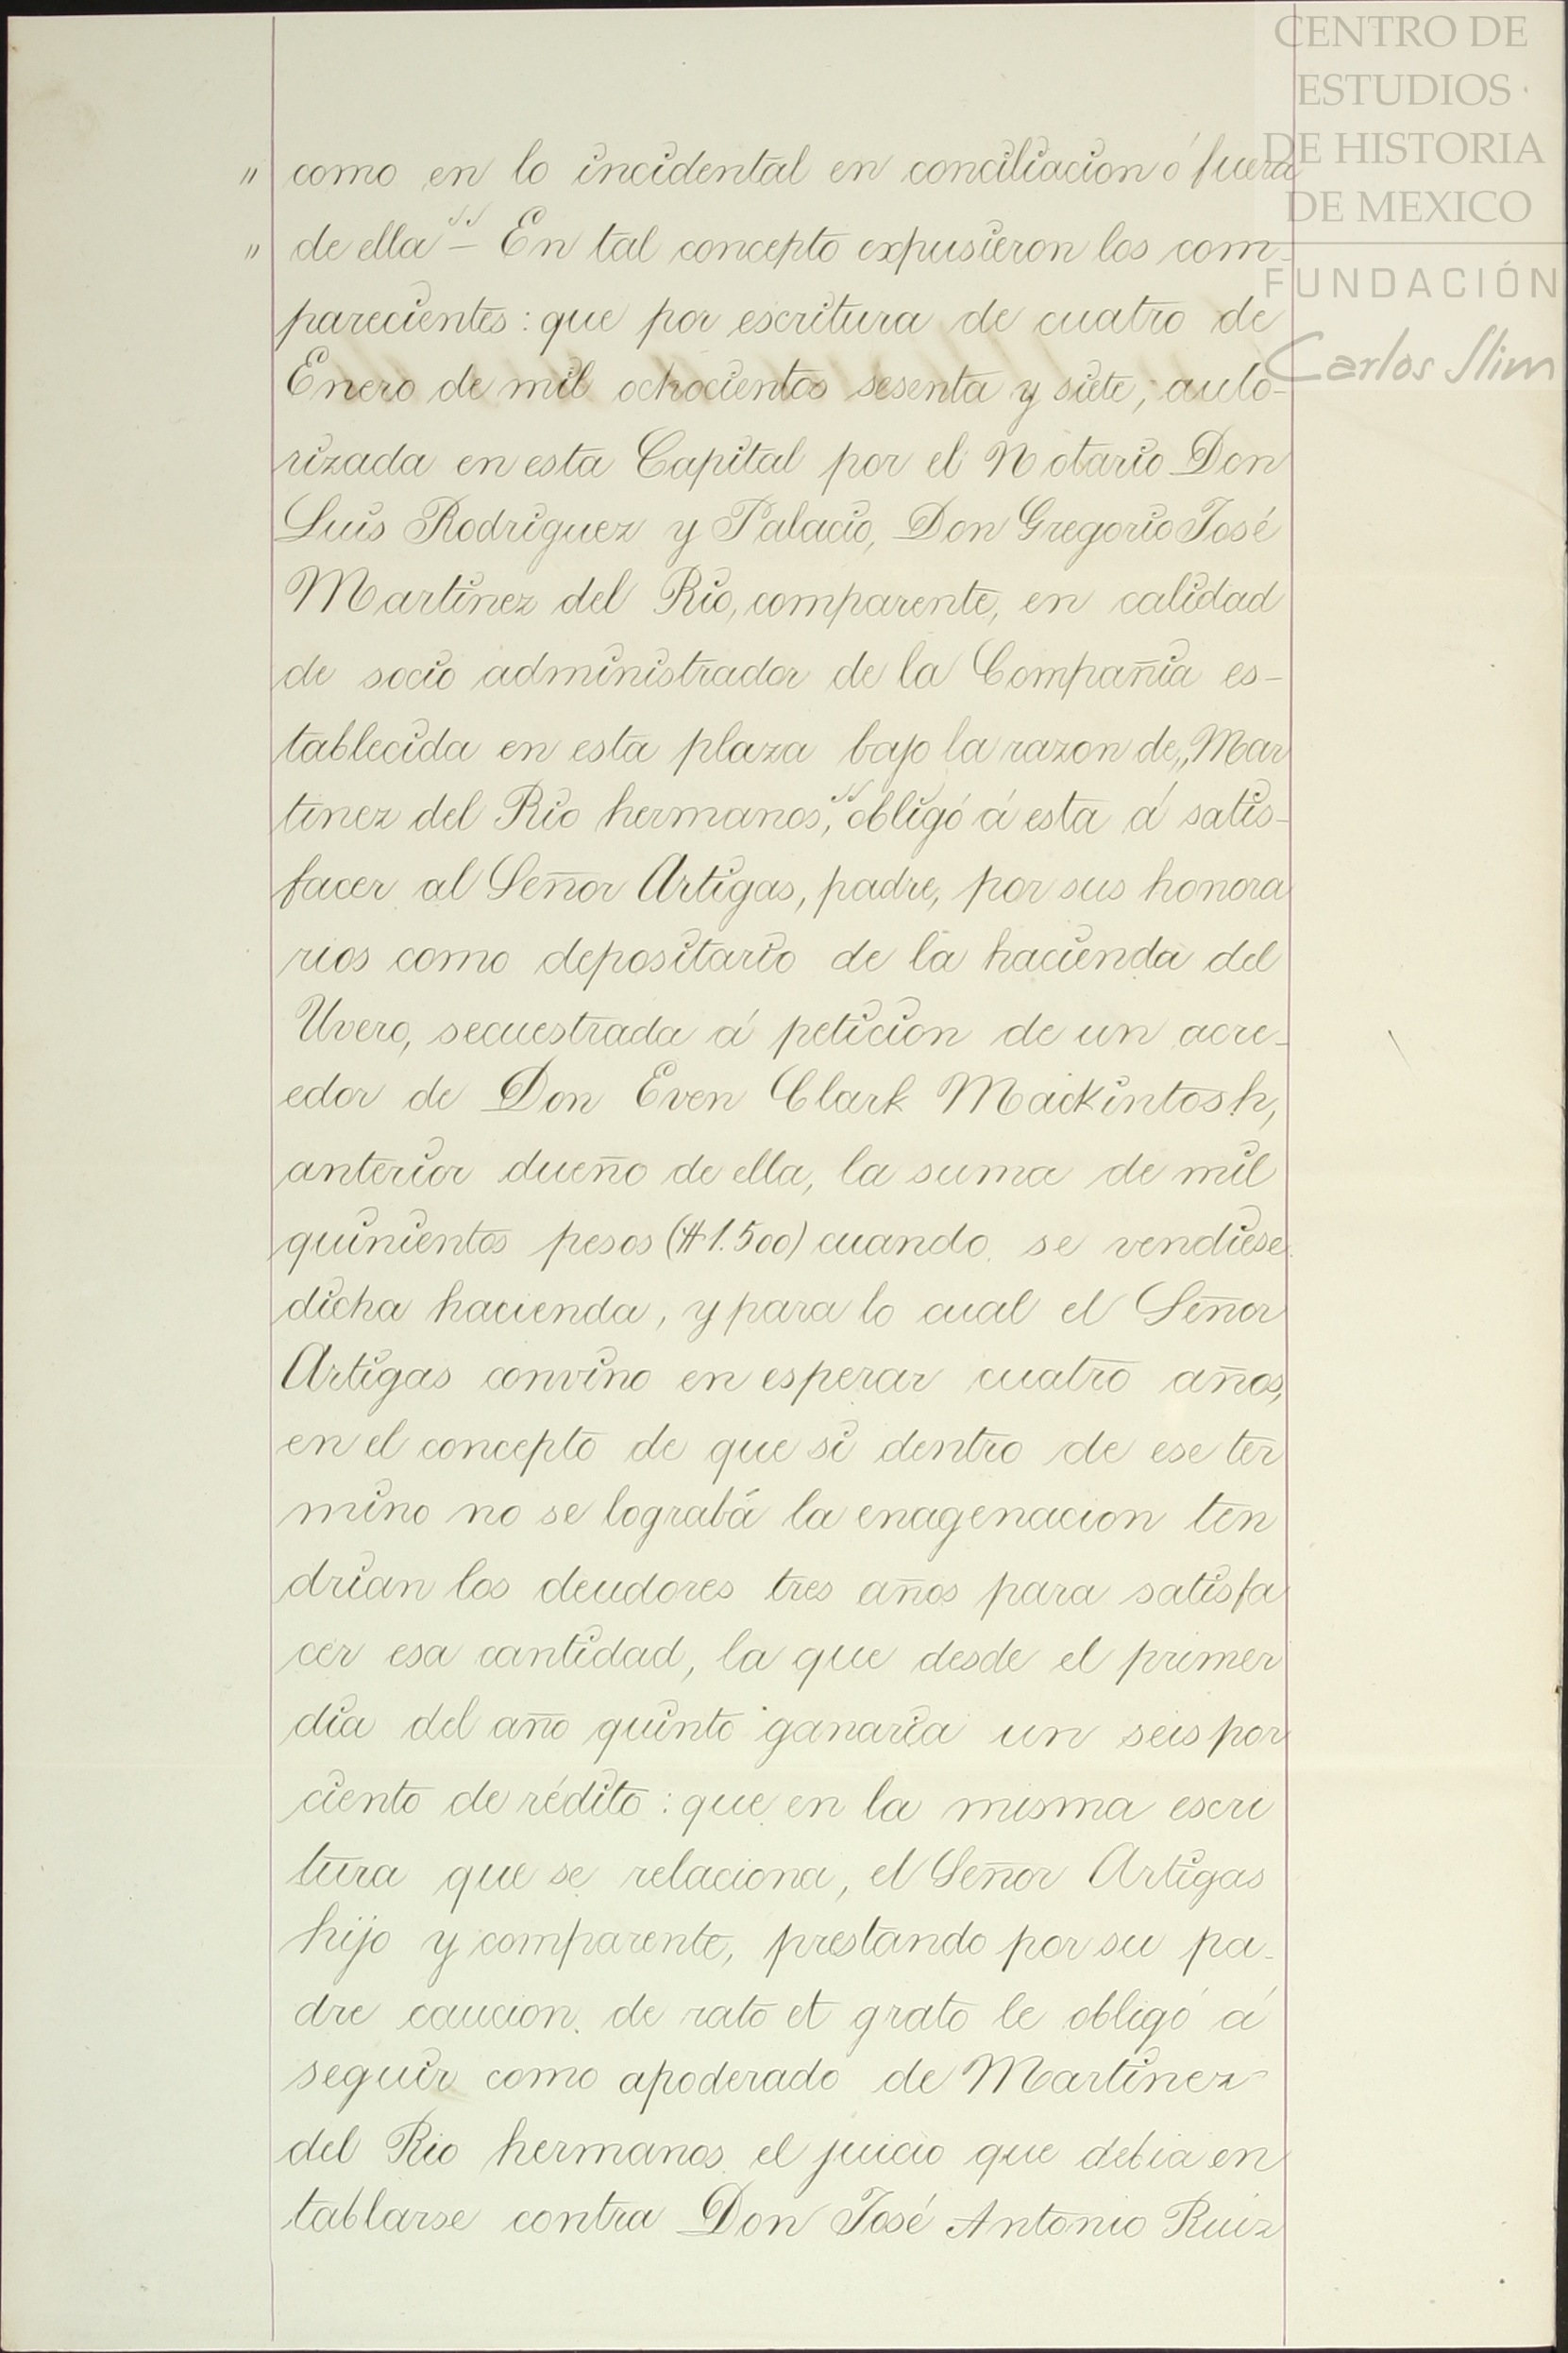 CENTRO DE
ESTUDIOS
DE HISTORIA
DE MEXICO
FUNDACIÓN
Carlos Slim
" como en lo incidental en conciliacion ó fuera
" de ella" – En tal concepto expusieron los com-
parecientes: que por escritura de cuatro de
Enero de mil ochocientos sesenta y siete, auto-
rizada en esta Capital por el Notario Don
Luis Rodriguez y Palacio, Don Gregorio José
Martinez del Rio, comparente, en calidad
de socio administrador de la Compañia es-
tablecida en esta plaza bajo la razon de „Mar
tinez del Rio hermanos," obligó á esta á satis-
facer al Señor Artigas, padre, por sus honora
rios como depositario de la hacienda del
Uvero, secuestrada á peticion de un acre-
edor de Don Even Clark Mackintosh,
anterior dueño de ella, la suma de mil
quinientos pesos ($1.500) cuando se vendiese
dicha hacienda, y para lo cual el Señor
Artigas convino en esperar cuatro años,
en el concepto de que si dentro de ese ter
mino no se lograbá la enagenacion ten
drian los deudores tres años para satisfa
cer esa cantidad, la que desde el primer
dia del año quinto ganaria un seis por
ciento de rédito: que en la misma escri
tura que se relaciona, el Señor Artigas
hijo y comparente, prestando por su pa-
dre caucion de rato et grato le obligó á
seguir como apoderado de Martinez
del Rio hermanos el juicio que debia en
tablarse contra Don José Antonio Ruiz